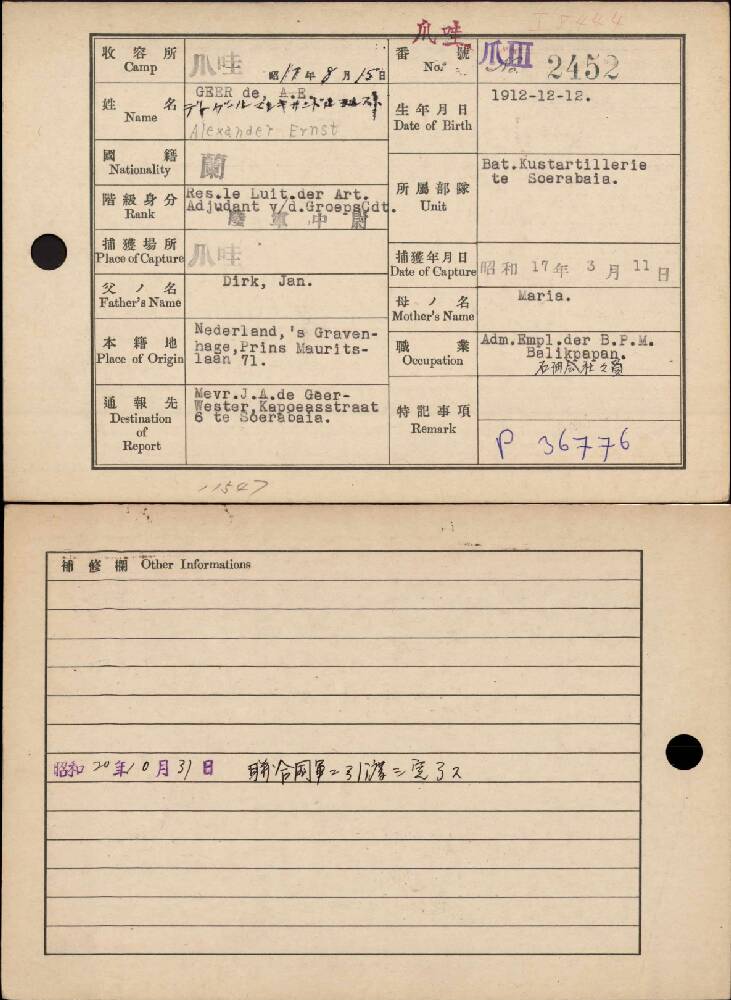 I 8444
爪哇
收容所
Camp
爪哇
昭17年8月15日
番號
No.
爪III
2452
姓名
Name
GEER de, A.E.
Alexander Ernst
生年月日
Date of Birth
1912-12-12.
國籍
Nationality
蘭
所屬部隊
Unit
Bat.Kustartillerie
te Soerabaia.
階級身分
Rank
Res.1e Luit.der Art.
Adjudant v/d.GroepsCdt.
陸軍中尉
捕獲場所
Place of Capture
爪哇
捕獲年月日
Date of Capture
昭和 17年 3月 11日
父ノ名
Father's Name
Dirk, Jan.
母ノ名
Mother's Name
Maria.
本籍地
Place of Origin
Nederland,'s Graven-
hage,Prins Maurits-
laan 71.
職業
Occupation
Adm.Empl.der B.P.M.
Balikpapan.
通報先
Destination
of
Report
Mevr.J.A.de Geer-
Wester,Kapoeasstraat
6 te Soerabaia.
特記事項
Remark
P 36776
11547
補修欄 Other Informations
昭和20年10月31日 聯合國軍ニ引渡ヲ完了ス